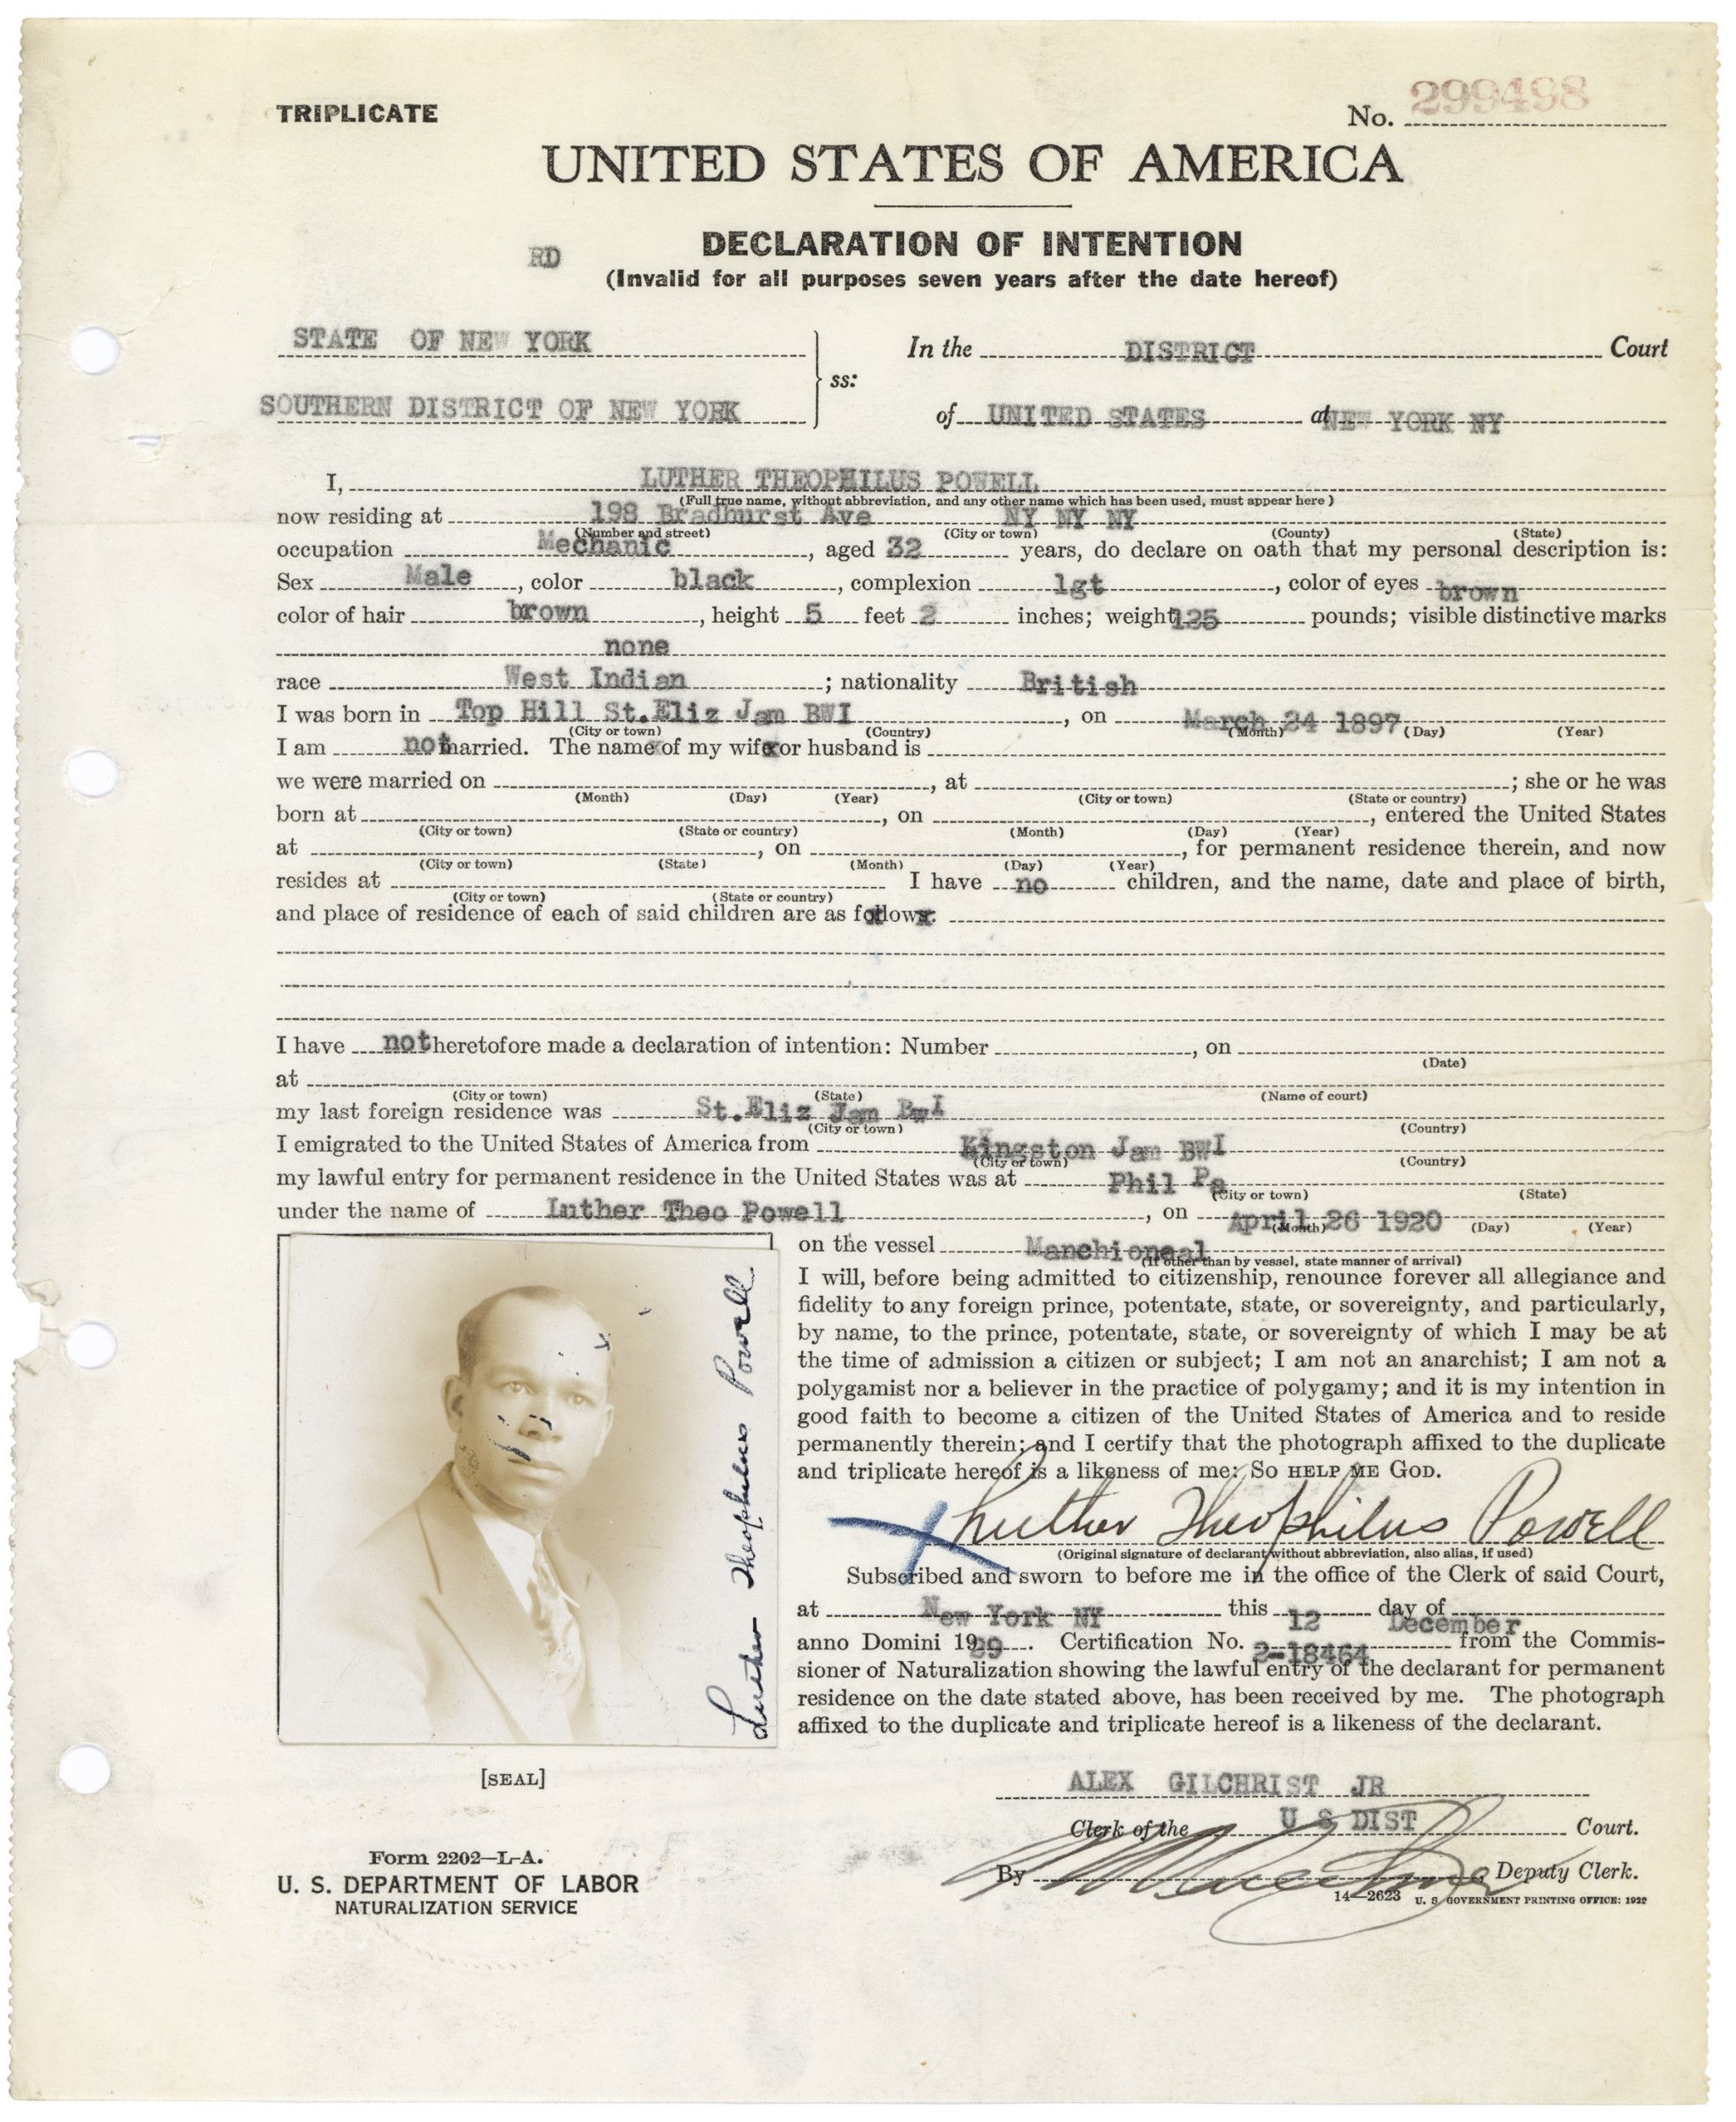 TRIPLICATE
No. 299498
UNITED STATES OF AMERICA
RD
DECLARATION OF INTENTION
(Invalid for all purposes seven years after the date hereof)
STATE OF NEW YORK
SOUTHERN DISTRICT OF NEW YORK
ss:
In the DISTRICT Court
of UNITED STATES at NEW YORK NY
I, LUTHER THEOPHILUS POWELL
(Full true name, without abbreviation, and any other name which has been used, must appear here)
now residing at 198 Bradhurst Ave NY NY NY
(Number and street) (City or town) (County) (State)
occupation Mechanic, aged 32 years, do declare on oath that my personal description is:
Sex Male, color black, complexion lgt, color of eyes brown
color of hair brown, height 5 feet 2 inches; weight 125 pounds; visible distinctive marks
none
race West Indian; nationality British
I was born in Top Hill St.Eliz Jam BWI, on March 24 1897
(City or town) (Country) (Month) (Day) (Year)
I am not married. The name of my wife or husband is
we were married on , at ; she or he was
(Month) (Day) (Year) (City or town) (State or country)
born at , on , entered the United States
(City or town) (State or country) (Month) (Day) (Year)
at , on , for permanent residence therein, and now
(City or town) (State) (Month) (Day) (Year)
resides at I have no children, and the name, date and place of birth,
(City or town) (State or country)
and place of residence of each of said children are as follows:
I have not heretofore made a declaration of intention: Number , on
(Date)
at
(City or town) (State) (Name of court)
my last foreign residence was St.Eliz Jam BwI
(City or town) (Country)
I emigrated to the United States of America from Kingston Jam BWI
(City or town) (Country)
my lawful entry for permanent residence in the United States was at Phil Pa
(City or town) (State)
under the name of Luther Theo Powell, on April 26 1920
(Month) (Day) (Year)
on the vessel Manchioneal
(If other than by vessel, state manner of arrival)
I will, before being admitted to citizenship, renounce forever all allegiance and
fidelity to any foreign prince, potentate, state, or sovereignty, and particularly,
by name, to the prince, potentate, state, or sovereignty of which I may be at
the time of admission a citizen or subject; I am not an anarchist; I am not a
polygamist nor a believer in the practice of polygamy; and it is my intention in
good faith to become a citizen of the United States of America and to reside
permanently therein; and I certify that the photograph affixed to the duplicate
and triplicate hereof is a likeness of me: SO HELP ME GOD.
Luther Theophilus Powell
Luther Theophilus Powell
(Original signature of declarant without abbreviation, also alias, if used)
Subscribed and sworn to before me in the office of the Clerk of said Court,
at New York NY this 12 day of December
anno Domini 1929. Certification No. 2-18464 from the Commis-
sioner of Naturalization showing the lawful entry of the declarant for permanent
residence on the date stated above, has been received by me. The photograph
affixed to the duplicate and triplicate hereof is a likeness of the declarant.
[SEAL]
ALEX GILCHRIST JR
Clerk of the U S DIST Court.
By Deputy Clerk.
Form 2202—L-A.
U. S. DEPARTMENT OF LABOR
NATURALIZATION SERVICE
14—2623 U. S. GOVERNMENT PRINTING OFFICE: 1929